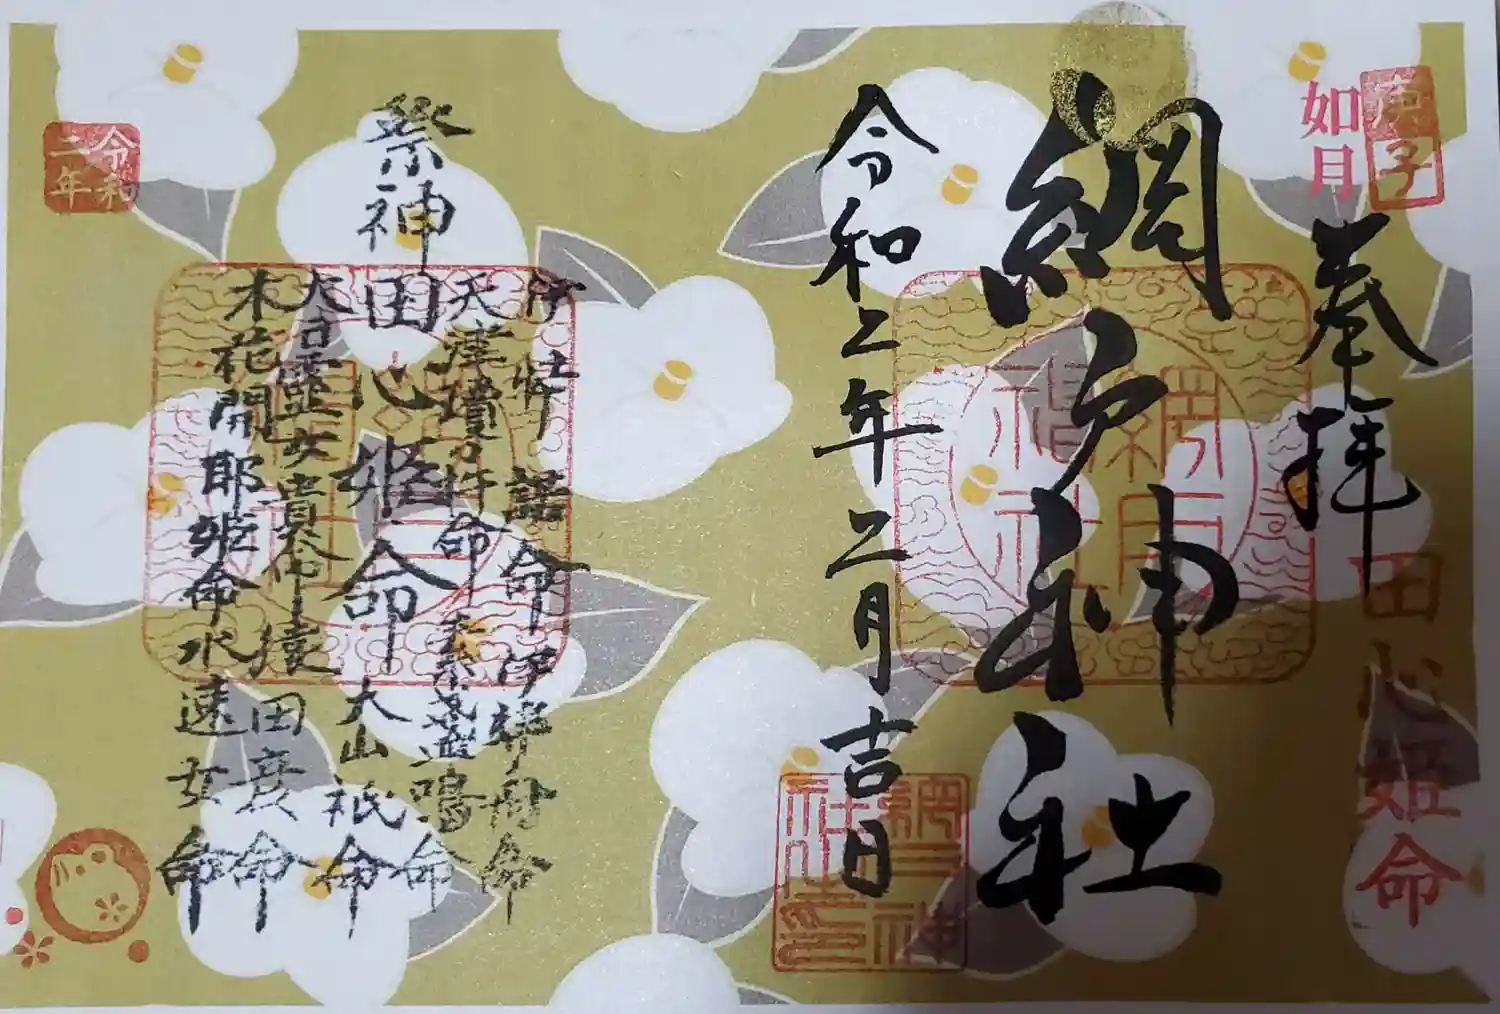 庚子
如月
奉拝
田心姫命
網戸神社
網戸
神社
令和二年二月吉日
網戸神
社之印
祭神
伊弉諾命 伊弉冉命
天津瓊々杵命 素戔嗚命
田心姫命 大山祇命
大日孁女貴命 猿田彦命
木花開耶姫命 水速女命
令和
二年